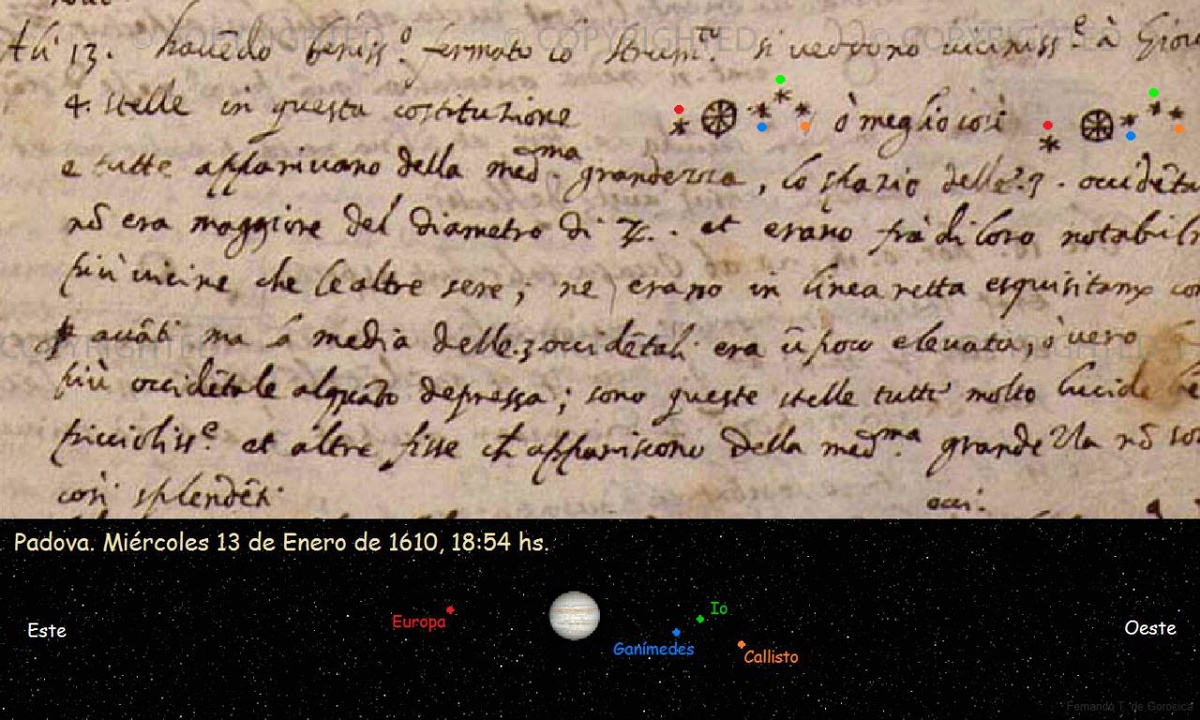 Adi 13. havēdo beniss.º fermato lo strum.tº si veddono viciniss.e à Giove
4. stelle in questa costituzione ò meglio così
e tutte apparivano della med.ma grandezza, lo spazio delle 3. occidētali
nō era maggiore del diametro di ♃. et erano frà di loro notabilm
più vicine che le altre sere; ne erano in linea retta esquisitamē come
avāti ma la media delle 3 occidētali era ū poco elevata, ò vero
più occidētale alquāto depressa; sono queste stelle tutte molto lucide
piccioliss.e et altre fisse ch appariscono della med.ma grandezza nō sono
così splendēti.
Padova. Miércoles 13 de Enero de 1610, 18:54 hs.
Io
Europa
Este
Oeste
Ganímedes
Callisto
Fernando T. de Gorocica